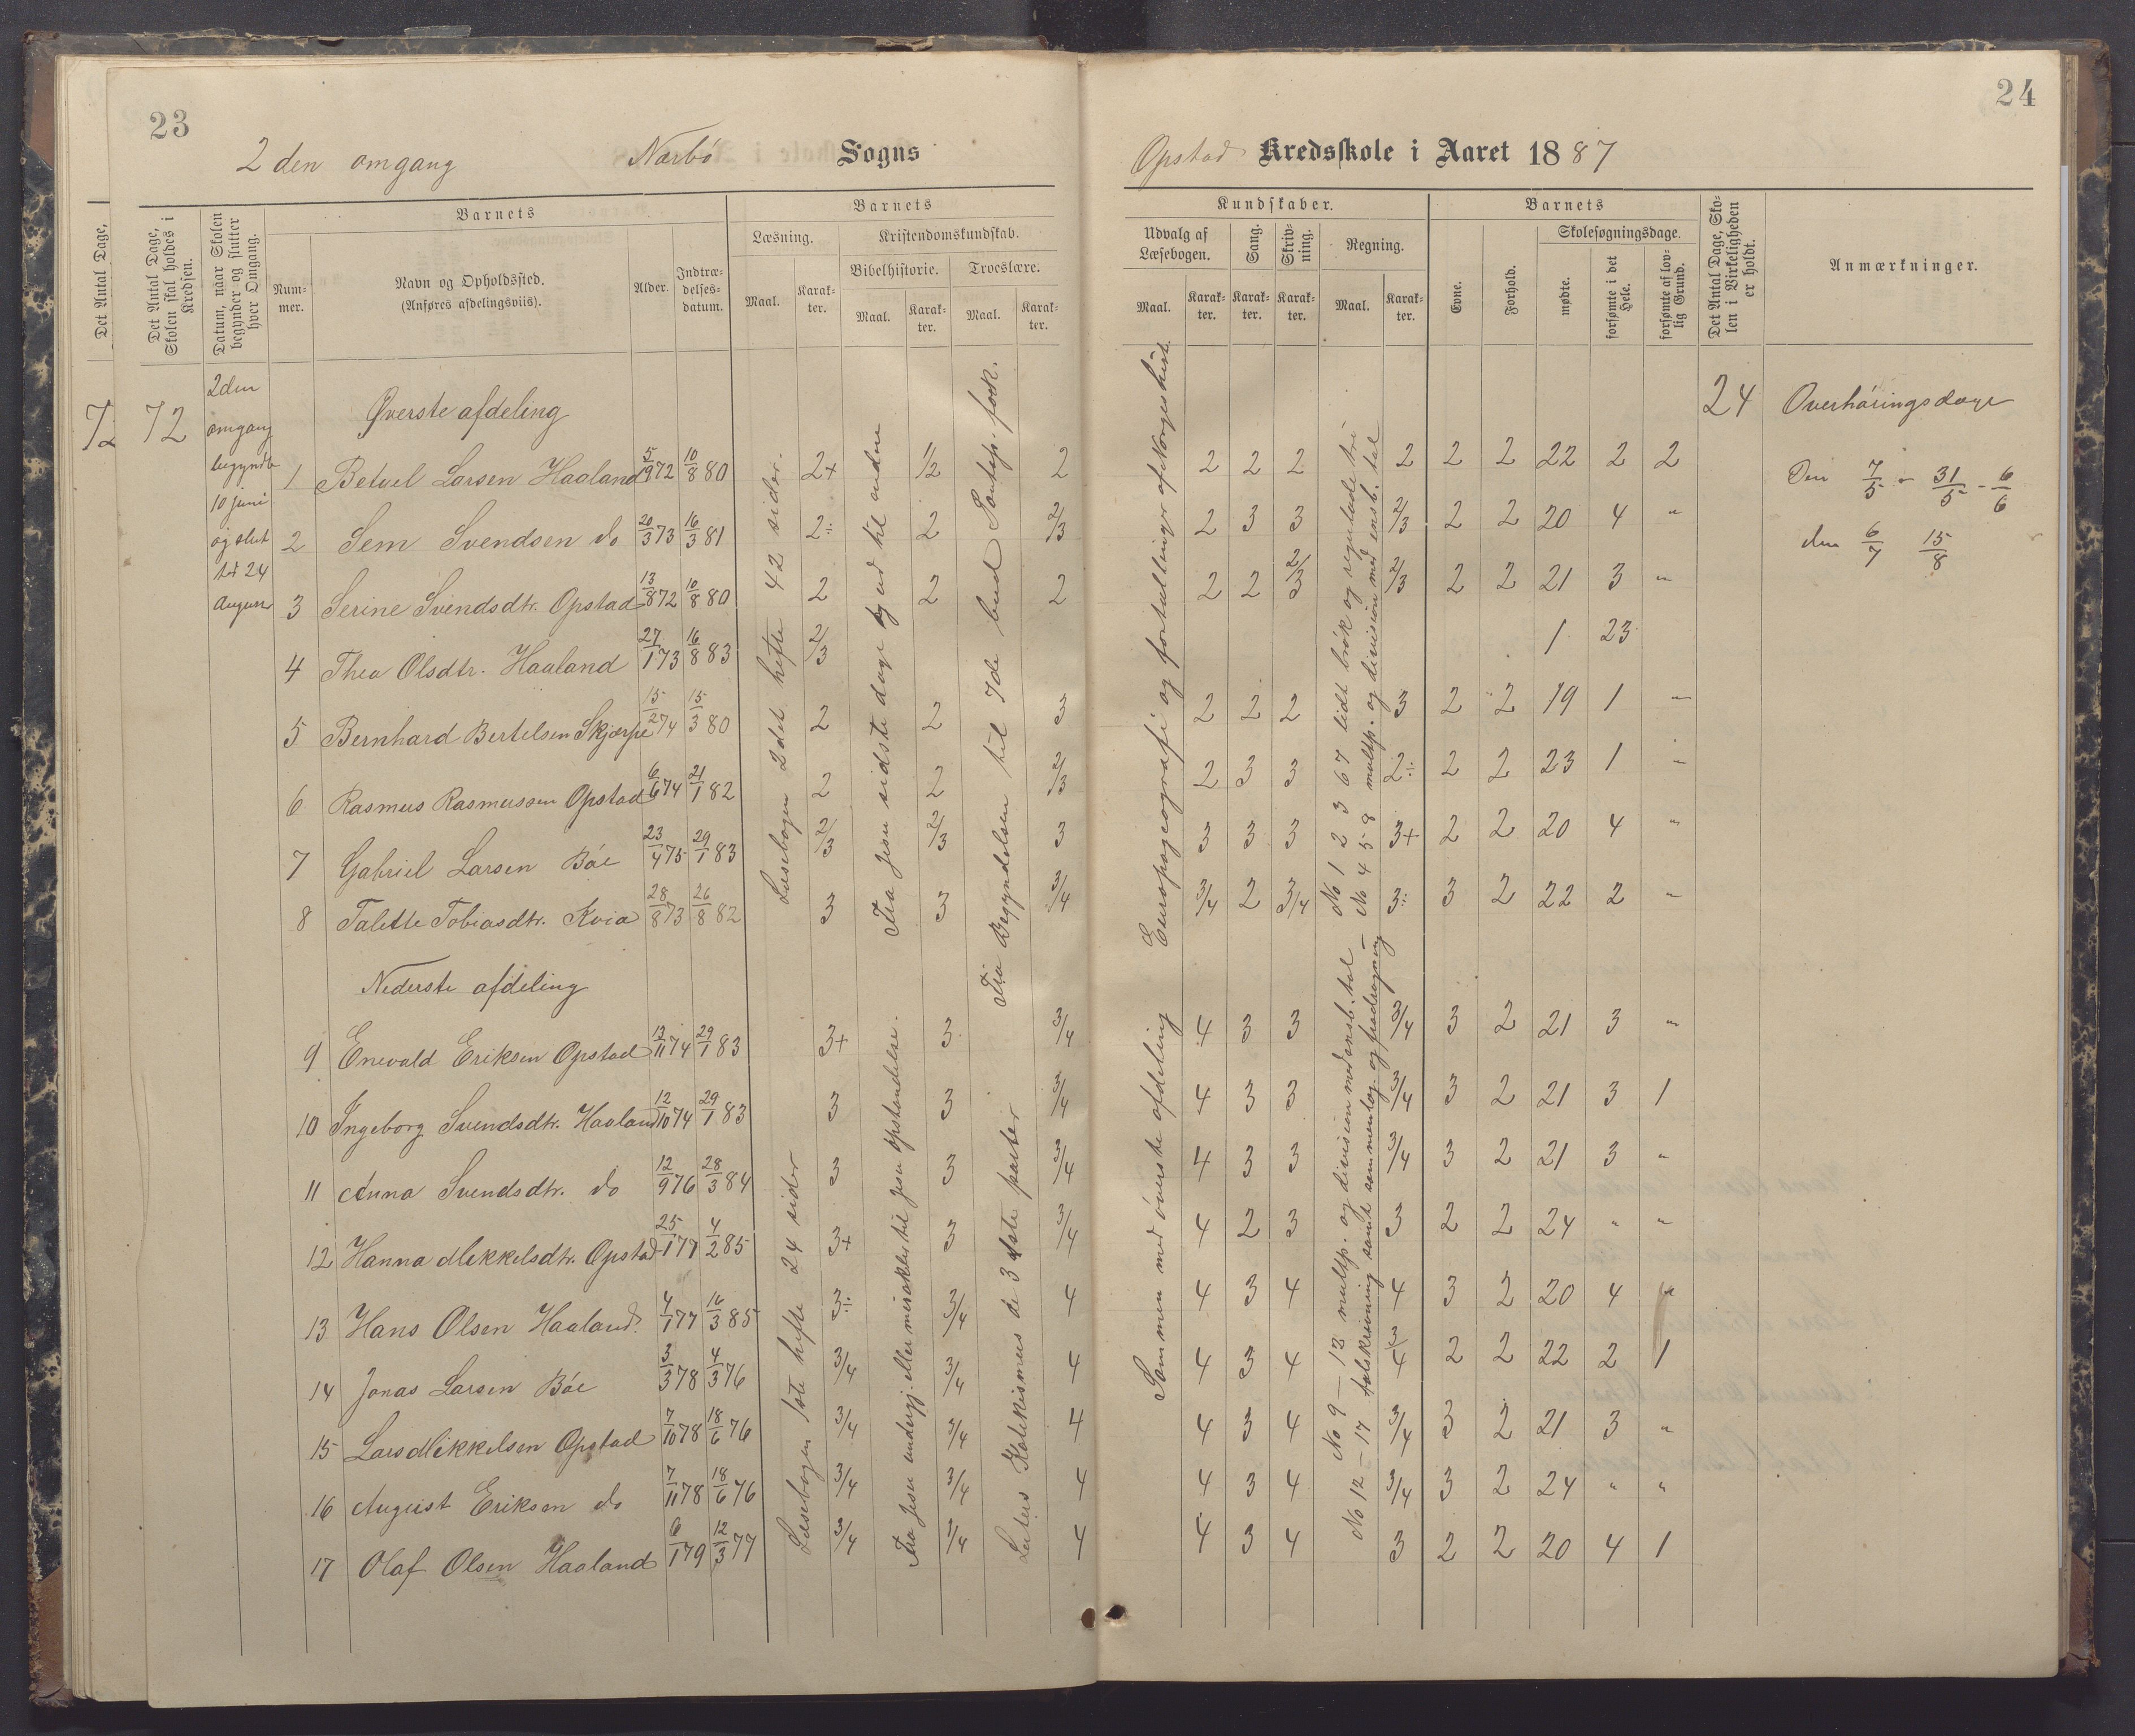 23
2den omgang Nærbö Sogns
Det Antal Dage,
Det Antal Dage, Skolen skal holdes i Kredsen.
Datum, naar Skolen begynder og slutter hver Omgang.
Barnets
Nummer.
Navn og Opholdssted.
(Anføres afdelingsviis).
Alder.
Indtrædelsesdatum.
Barnets
Læsning.
Maal.
Karakter.
Kristendomskundskab.
Bibelhistorie.
Maal.
Karakter.
Troeslære.
Maal.
Karakter.
72
72
2den
omgang
begyndte
10 juni
og slut
tet 24
August
Øverste afdeling
1 Betuel Larsen Haaland 5/9 72 10/8 80 2+ 1/2 2
2 Sem Svendsen do 20/3 73 16/3 81 2÷ 2 2/3
3 Serine Svendsdtr. Opstad 13/8 72 10/8 80 2 2 2
4 Thea Olsdtr. Haaland 27/1 73 16/8 83 2/3
5 Bernhard Bertelsen Skjærpe 15/2 74 15/3 80 2 2 3
6 Rasmus Rasmussen Opstad 6/6 74 21/1 82 2 2 2/3
7 Gabriel Larsen Böe 23/4 75 29/1 83 2/3 2/3 3
8 Talette Tobiasdtr. Kvia 28/8 73 26/8 82 3 3 3/4
Læsebogen 2det hefte 42 sider.
Fra Jesu sidste dage og ud til enden
Fra Begyndelsen til 7de bud Pontop. fork.
Nederste afdeling
9 Enevald Eriksen Opstad 13/11 74 29/1 83 3+ 3 3/4
10 Ingeborg Svendsdtr. Haaland 12/10 74 29/1 83 3 3 3/4
11 Anna Svendsdtr. do 12/9 76 28/3 84 3 3 3/4
12 Hanna Mikkelsdtr. Opstad 25/1 77 4/2 85 3+ 3 3/4
13 Hans Olsen Haaland. 4/1 77 16/3 85 3÷ 3/4 4
14 Jonas Larsen Böe 3/3 78 4/3 76 3/4 3/4 4
15 Lars Mikkelsen Opstad 7/10 78 18/6 76 3/4 3/4 4
16 August Eriksen do 7/11 78 18/6 76 3/4 3/4 4
17 Olaf Olsen Haaland 6/1 79 12/3 77 3/4 3/4 4
Læsebogen 1ste hefte 24 sider
Fra Jesu undergj. eller mirakler til Jesu opstandelse.
Luters Katekismus de 3 første parter
24
Opstad Kredsskole i Aaret 1887
Kundskaber.
Udvalg af Læsebogen.
Maal.
Karakter.
Sang.
Karakter.
Skrivning.
Karakter.
Regning.
Maal.
Karakter.
Barnets
Evne.
Forhold.
Skolesøgningsdage.
mødte.
forsømte i det Hele.
forsømte af lovlig Grund.
Det Antal Dage, Skolen i Virkeligheden er holdt.
Anmærkninger.
24 Overhöringsdage
Den 7/5 - 31/5 - 6/6
den 6/7 15/8
2 2 2 2 2 2 22 2 2
2 3 3 2/3 2 2 20 4 "
2 2 2/3 2/3 2 2 21 3 "
1 23
2 2 2 3 2 2 19 1 "
2 3 3 2÷ 2 2 23 1 "
3 3 3 3+ 2 2 20 4 "
3/4 2 3/4 3÷ 3 2 22 2 "
Europageografi og fortællinger af Norgeshist.
No 1 2 3 6 7 lidt brök og reguladetri
No 4 5 8 multip. og division med ensb. tal
4 3 3 3/4 3 2 21 3 "
4 3 3 3/4 3 2 21 3 1
4 3 3 3/4 3 2 21 3 "
4 2 3 3 2 2 24 " "
4 3 4 4 3 2 20 4 "
4 3 4 3/4 2 2 22 2 1
4 3 4 3/4 3 2 21 3 "
4 3 4 3/4 3 2 24 " "
4 3 4 3 2 2 20 4 1
Sammen med överste afdeling
No 9 — 13 multip. og division med ensb. tal —
No 12 — 17 talskrivning samt sammenlæg. og fradragning